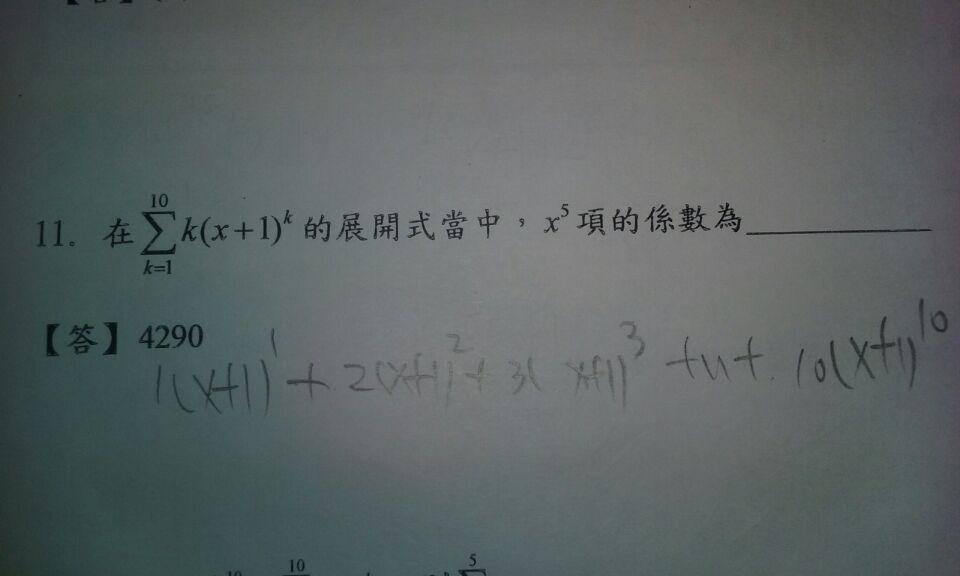 11. 在 $\sum_{k=1}^{10} k(x+1)^k$ 的展開式當中，$x^5$ 項的係數為
【答】4290
1(x+1)^1 + 2(x+1)^2 + 3(x+1)^3 + 10(x+1)^10
10 5